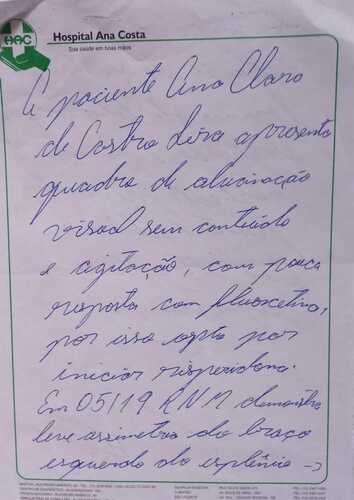 HAC
Hospital Ana Costa
Sua saúde em boas mãos
A paciente Ana Clara
de Castro Lira apresenta
quadro de alucinação
visual sem conteúdo
e agitação, com pouca
resposta com fluoxetina,
por isso opto por
iniciar risperidona.
Em 05/19 RNM demonstra
leve assimetria do braço
esquerdo do esplênio →